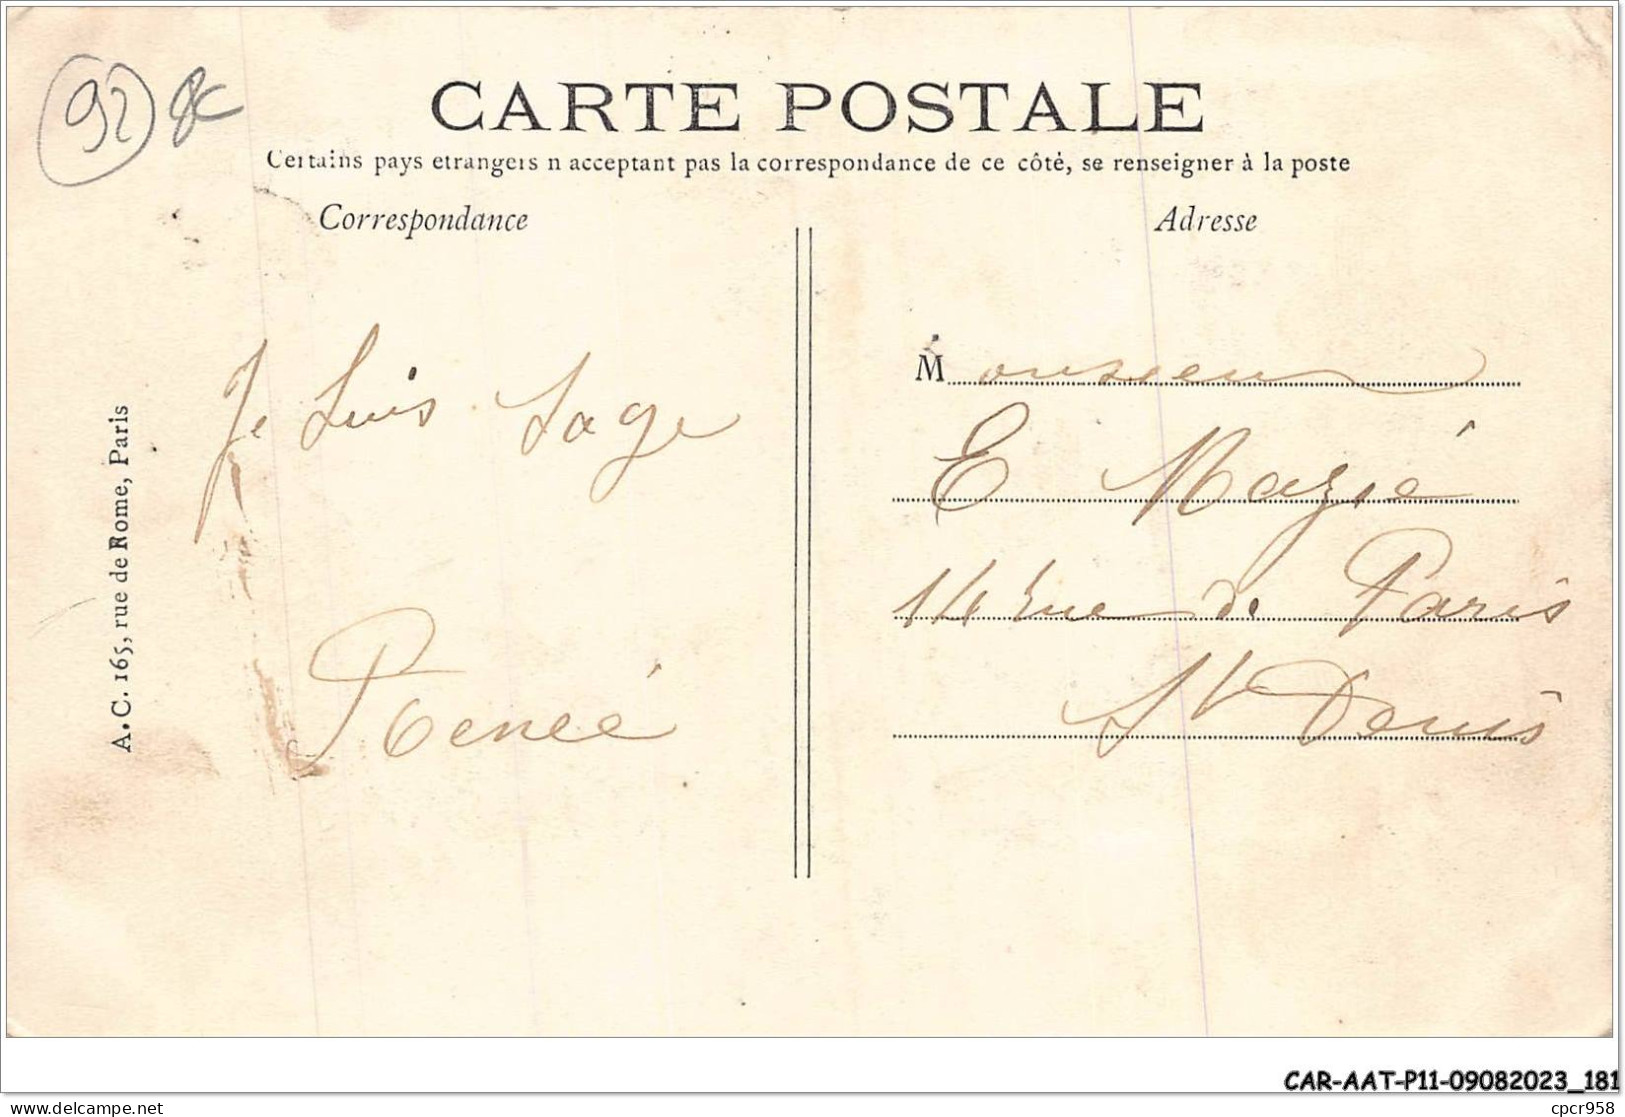 92 8€
CARTE POSTALE
Certains pays etrangers n acceptant pas la correspondance de ce côté, se renseigner à la poste
Correspondance
Adresse
A.C. 165, rue de Rome, Paris
Je suis sage
Renée
Monsieur
E Mazié
14 rue de Paris
St Denis
CAR-AAT-P11-09082023_181
delcampe.net
cpcr958